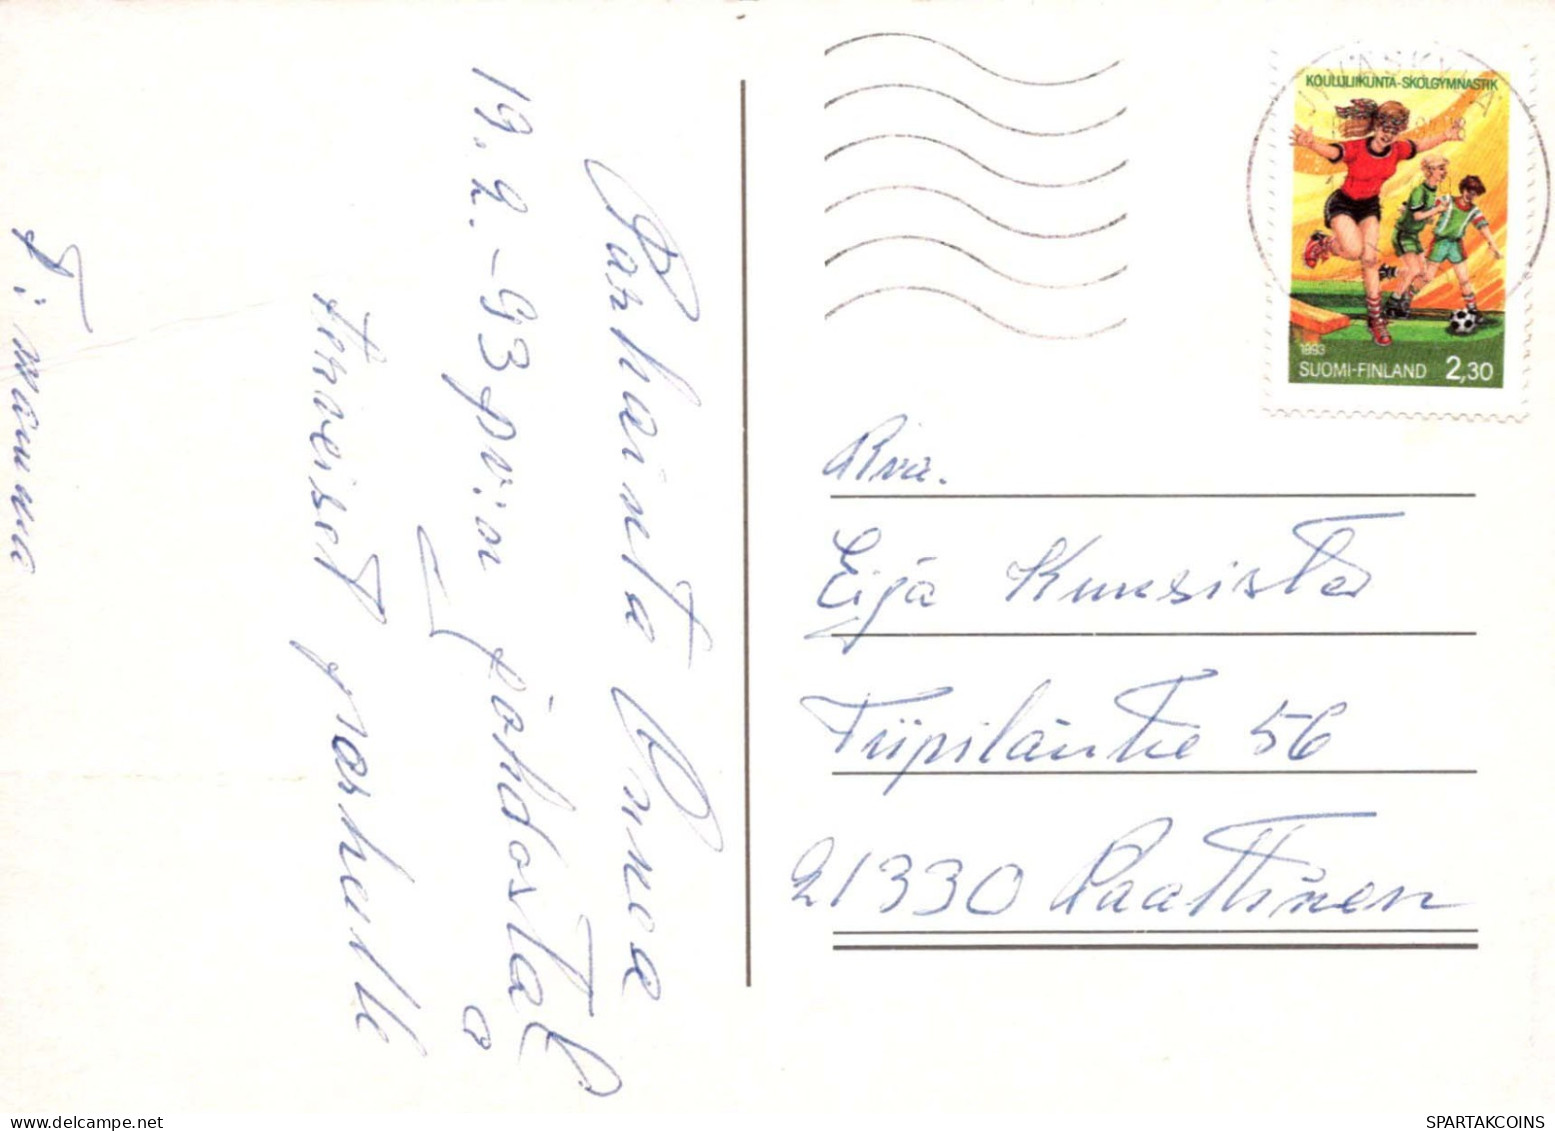 Parhainta Onnea
19.2.-93 p:vän johdosta!
terveiset perheelle
T: mamma
KOULULIIKUNTA-SKOLGYMNASTIK
1993
SUOMI-FINLAND 2,30
Rva.
Eija Kuusisto
Tiipiläntie 56
21330 Paattinen
delcampe.net
SPARTAKCOINS